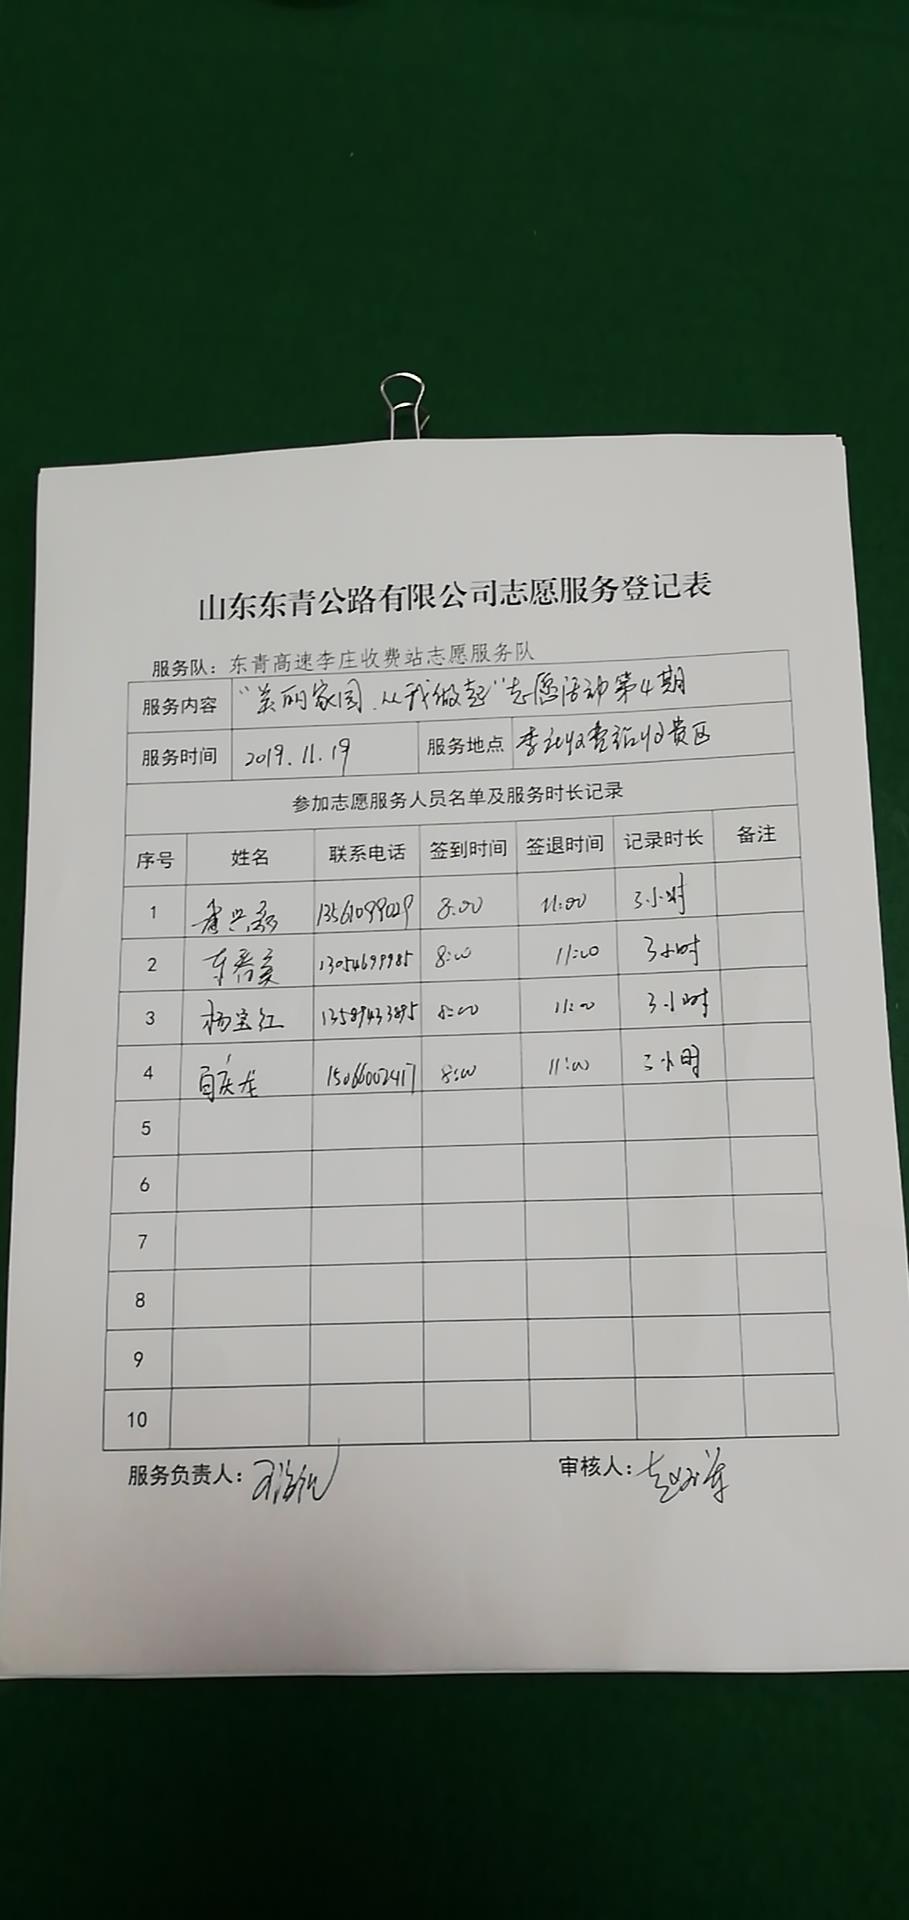 山东东青公路有限公司志愿服务登记表
服务队：东青高速李庄收费站志愿服务队
服务内容 "美丽家园、从我做起"志愿活动第4期
服务时间 2019.11.19 服务地点 李庄收费站收费区
参加志愿服务人员名单及服务时长记录
序号 姓名 联系电话 签到时间 签退时间 记录时长 备注
1 13561099029 8:00 11:00 3小时
2 13054699985 8:00 11:00 3小时
3 杨宝红 13589433895 8:00 11:00 3小时
4 15066002417 8:00 11:00 3小时
5
6
7
8
9
10
服务负责人： 审核人：